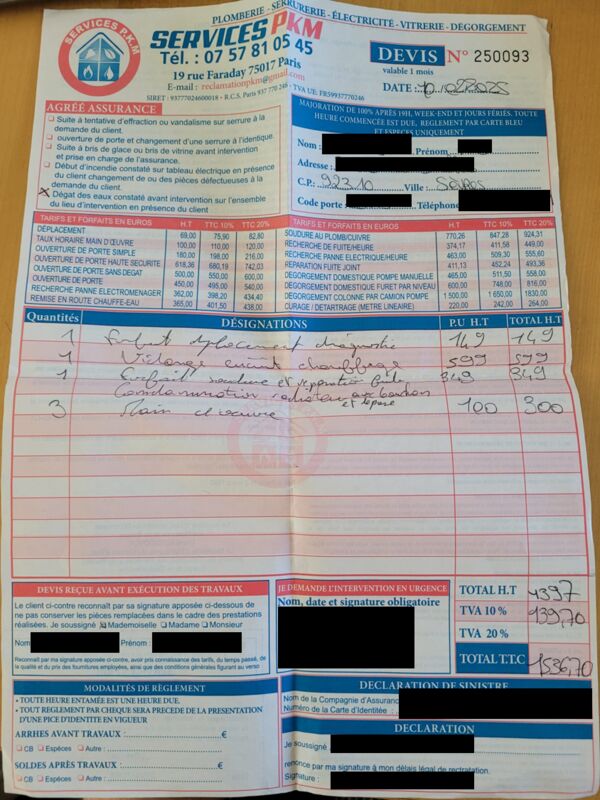 PLOMBERIE - SERRURERIE - ÉLECTRICITÉ - VITRERIE - DÉGORGEMENT
SERVICES P.K.M
SERVICES PKM
Tél. : 07 57 81 05 45
19 rue Faraday 75017 Paris
E-mail : reclamationpkm@gmail.com
SIRET : 93777024600018 - R.C.S. Paris 937 770 246 - TVA UE: FR59937770246
DEVIS N° 250093
valable 1 mois
DATE : 2025
AGRÉÉ ASSURANCE
Suite à tentative d'effraction ou vandalisme sur serrure à la
demande du client.
ouverture de porte et changement d'une serrure à l'identique.
Suite à bris de glace ou bris de vitrine avant intervention
et prise en charge de l'assurance.
Début d'incendie constaté sur tableau électrique en présence
du client changement de ou des pièces défectueuses à la
demande du client.
x Dégat des eaux constaté avant intervention sur l'ensemble
du lieu d'intervention en présence du client
MAJORATION DE 100% APRÈS 19H, WEEK-END ET JOURS FÉRIÉS. TOUTE
HEURE COMMENCÉE EST DUE, REGLEMENT PAR CARTE BLEU
ET ESPÈCES UNIQUEMENT
Nom : Prénom
Adresse :
C.P. 92310 Ville : Sèvres
Code porte Téléphone
TARIFS ET FORFAITS EN EUROS H.T TTC 10% TTC 20%
DÉPLACEMENT 69,00 75,90 82,80
TAUX HORAIRE MAIN D'ŒUVRE 100,00 110,00 120,00
OUVERTURE DE PORTE SIMPLE 180,00 198,00 216,00
OUVERTURE DE PORTE HAUTE SECURITE 618,36 680,19 742,03
OUVERTURE PORTE SANS DEGAT 500,00 550,00 600,00
OUVERTURE DE PORTE 450,00 495,00 540,00
RECHERCHE PANNE ELECTROMENAGER 362,00 398,20 434,40
REMISE EN ROUTE CHAUFFE-EAU 365,00 401,50 438,00
TARIFS ET FORFAITS EN EUROS H.T TTC 10% TTC 20%
SOUDURE AU PLOMB/CUIVRE 770,26 847,28 924,31
RECHERCHE DE FUITE/HEURE 374,17 411,58 449,00
RECHERCHE PANNE ELECTRIQUE/HEURE 463,00 509,30 555,60
REPARATION FUITE JOINT 411,13 452,24 493,36
DÉGORGEMENT DOMESTIQUE POMPE MANUELLE 465,00 511,50 558,00
DÉGORGEMENT DOMESTIQUE FURET PAR NIVEAU 600,00 748,00 816,00
DÉGORGEMENT COLONNE PAR CAMION POMPE 1 500,00 1 650,00 1830.00
CURAGE / DETARTRAGE (METRE LINEAIRE) 220,00 242,00 264,00
Quantités DÉSIGNATIONS P.U H.T TOTAL H.T
1 Forfait déplacement diagnostic 149 149
1 Vidange circuit chauffage 599 599
1 Forfait soudure et reparation fuite 349 349
Condamnation radiateur aux bouchon
et dépose
3 Main d'œuvre 100 300
SERVICES PKM
DEVIS REÇUE AVANT EXÉCUTION DES TRAVAUX
Le client ci-contre reconnaît par sa signature apposée ci-dessous de
ne pas conserver les pièces remplacées dans le cadre des prestations
réalisées. Je soussigné Mademoiselle Madame Monsieur
Nom Prénom :
Reconnaît par ma signature apposée ci-contre, avoir pris connaissance des tarifs, du temps passé, de
la qualité et du prix des fournitures employées, ainsi que des conditions générales figurant au verso
JE DEMANDE L'INTERVENTION EN URGENCE
Nom, date et signature obligatoire
TOTAL H.T 1397
TVA 10 % 139,70
TVA 20 %
TOTAL T.T.C 1536,70
MODALITÉS DE RÈGLEMENT
• TOUTE HEURE ENTAMÉE EST UNE HEURE DUE.
• TOUT REGLEMENT PAR CHEQUE SERA PRECEDE DE LA PRESENTATION
D'UNE PICE D'IDENTITE EN VIGUEUR
ARRHES AVANT TRAVAUX : €
CB Espèces Autre :
SOLDES APRÈS TRAVAUX : €
CB Espèces Autre :
DÉCLARATION DE SINISTRE
Nom de la Compagnie d'Assuranc
Numéro de la Carte d'Identitée :
DECLARATION
Je soussigné
renonce par ma signature à mon délais légal de rectratation.
Signature :